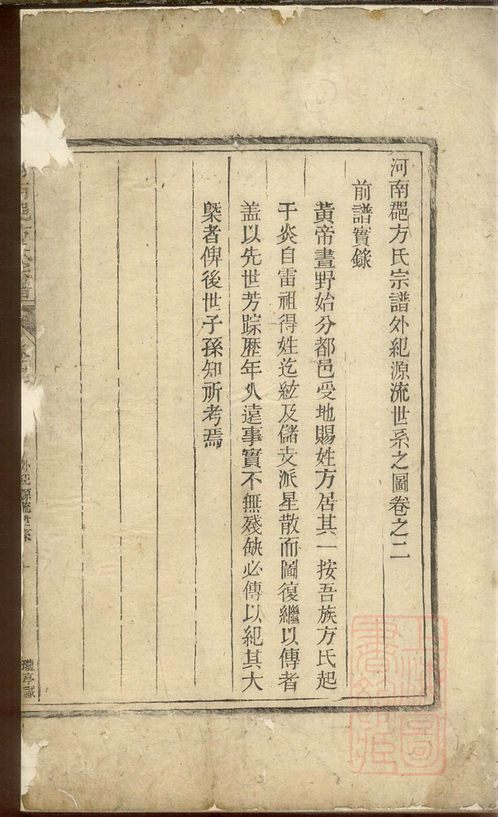 河南郡方氏宗譜外紀源流世系之圖卷之二
前譜實錄
黃帝晝野始分都邑受地賜姓方居其一按吾族方氏起
于炎自雷祖得姓迄紘及儲支派星散而圖復繼以傳者
蓋以先世芳踪歷年久遠事實不無殘缺必傳以紀其大
槩者俾後世子孫知所考焉
外紀源流世系